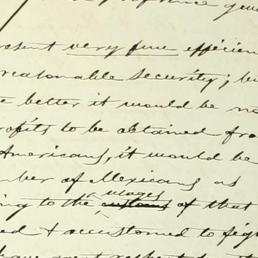 resent very few efficien
reasonable security; bu
better it would be no
rofits to be obtained fro
Americans, it would be
mber of Mexicans as
ing to the usages customs of that
ed & accustomed to fig